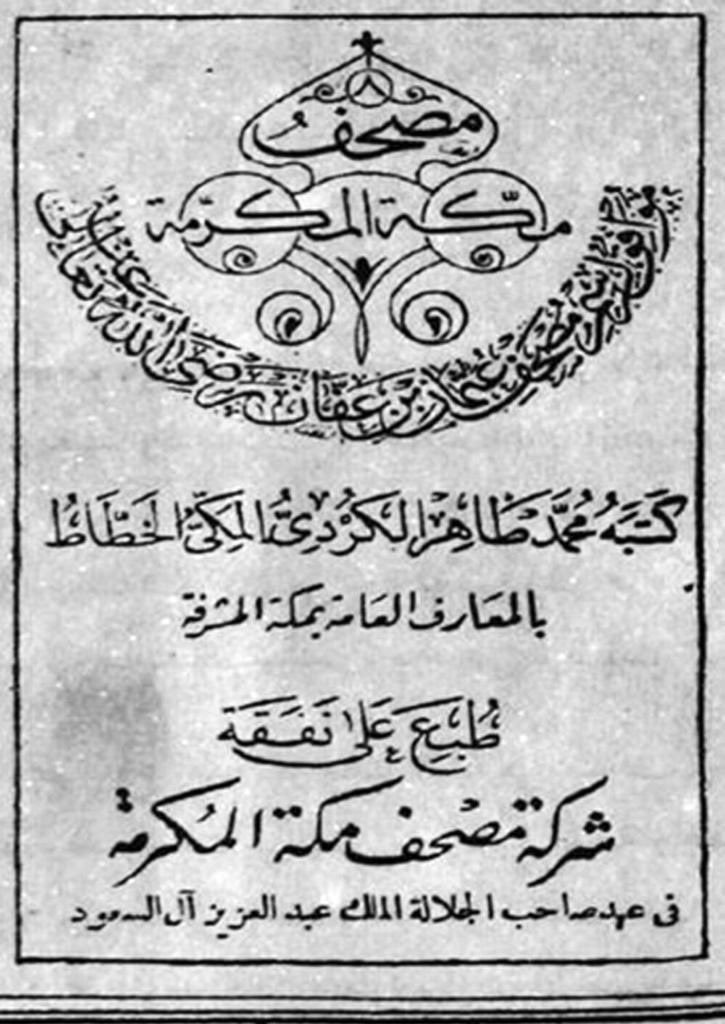 مصحف
مكّة المكرّمة
موافق لرسم مصحف عثمان بن عفان رضى الله تعالى عنه
كَتَبَهُ مُحَمَّد طَاهِر الكُرْدِىُّ المَكِّىُّ الخَطَّاطُ
بالمعارف العامة بمكة المشرفة
طُبِعَ عَلَى نَفَقَة
شركة مصحف مكة المكرمة
فى عهد صاحب الجلالة الملك عبد العزيز آل السعود